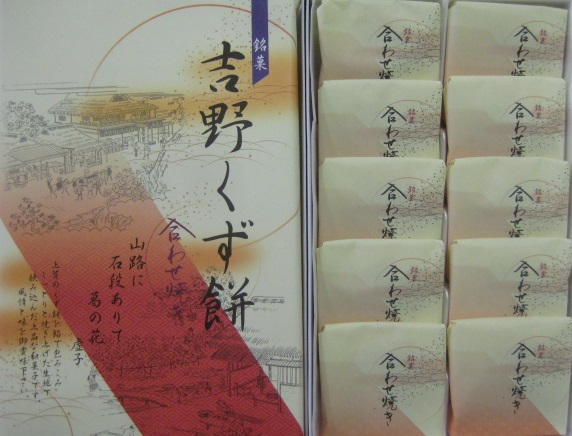 銘菓
吉野くず餅
合わせ焼き
山路に
石段ありて
葛の花
虚子
銘菓
合わせ焼
銘菓
合わせ焼
銘菓
合わせ焼
銘菓
合わせ焼
銘菓
合わせ焼
銘菓
合わせ焼
銘菓
合わせ焼
銘菓
合わせ焼
銘菓
合わせ焼き
銘菓
合わせ焼き